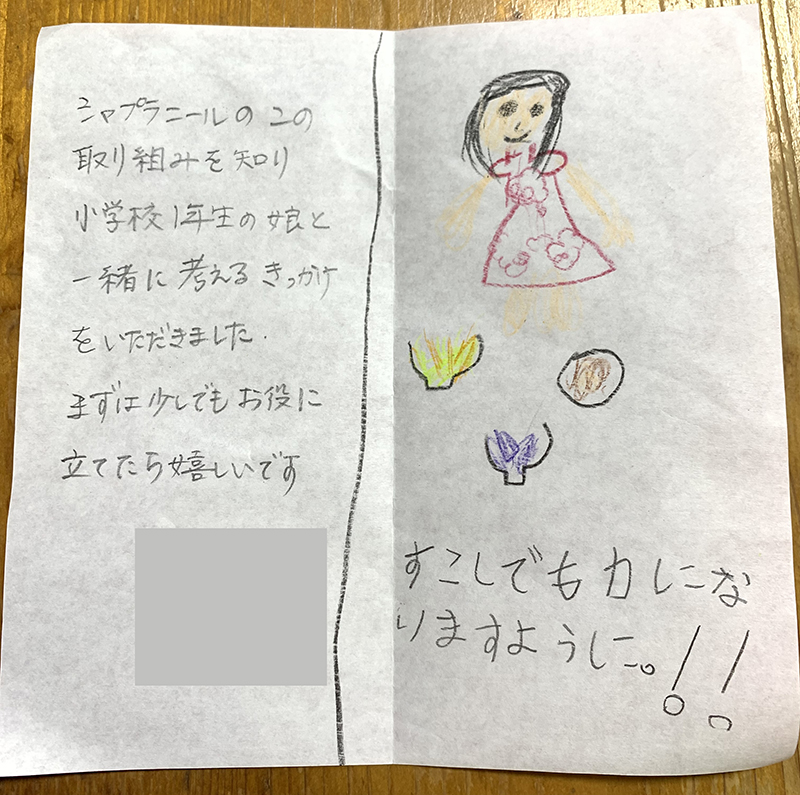 シャプラニールのこの
取り組みを知り
小学校1年生の娘と
一緒に考えるきっかけ
をいただきました.
まずは少しでもお役に
立てたら嬉しいです
すこしでも力にな
りますように。!!